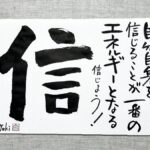 自分自身を
信じることが一番の
エネルギーとなる
信じよう！
信